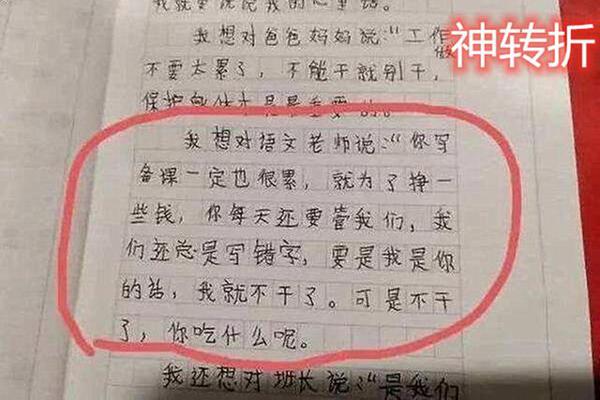 说说我的心里话。
我想对爸爸妈妈说:“工作
神转折
不要太累了,不能干就别干,
保护身体才是最重要的。
我想对语文老师说:“你写
备课一定也很累,就为了挣一
些钱,你每天还要管我们,我
们还总是写错字,要是我是你
的话,我就不干了。可是不干
了,你吃什么呢。
我还想对班长说:“是我们